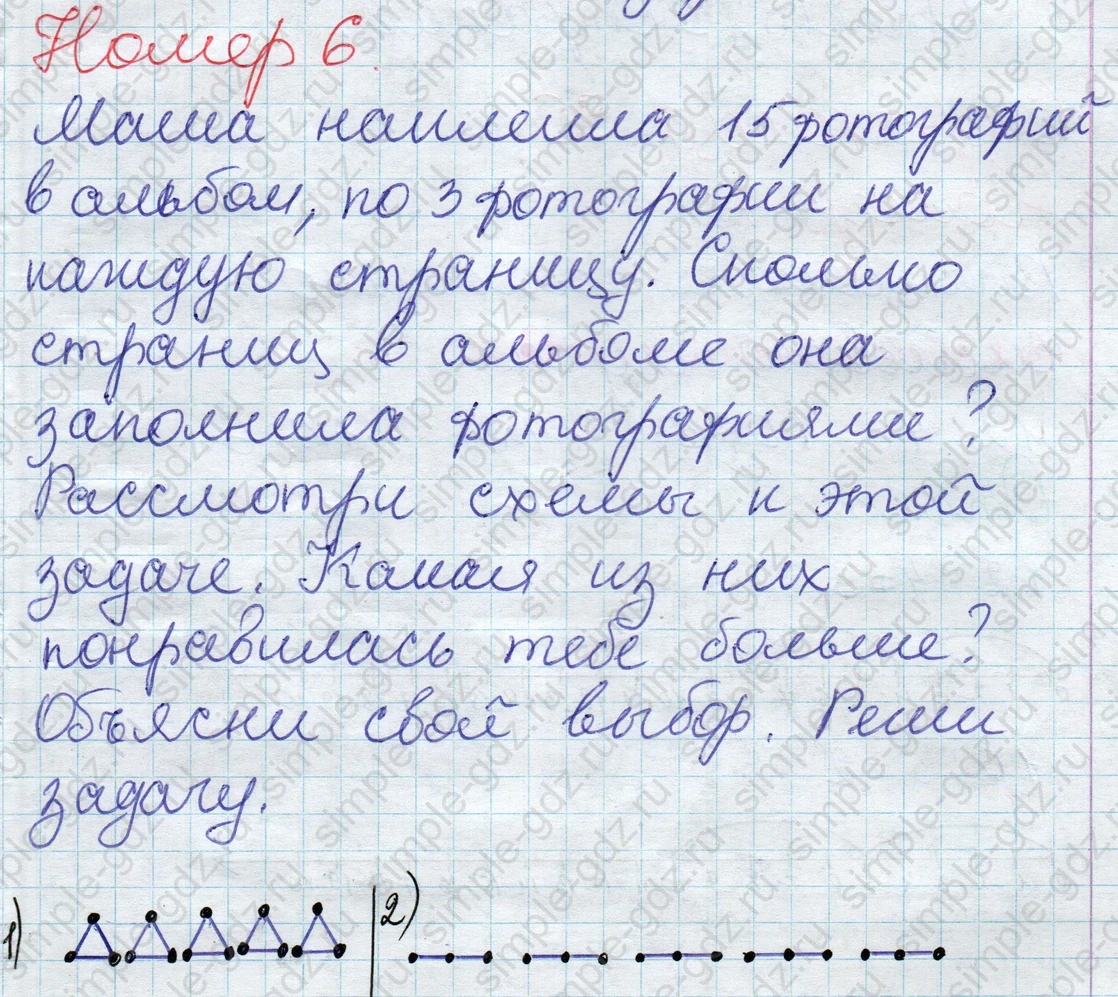 Номер 6.
Маша наклеила 15 фотографий
в альбом, по 3 фотографии на
каждую страницу. Сколько
страниц в альбоме она
заполнила фотографиями?
Рассмотри схемы к этой
задаче. Какая из них
понравилась тебе больше?
Объясни свой выбор. Реши
задачу.
1) 2)
simple-gdz.ru